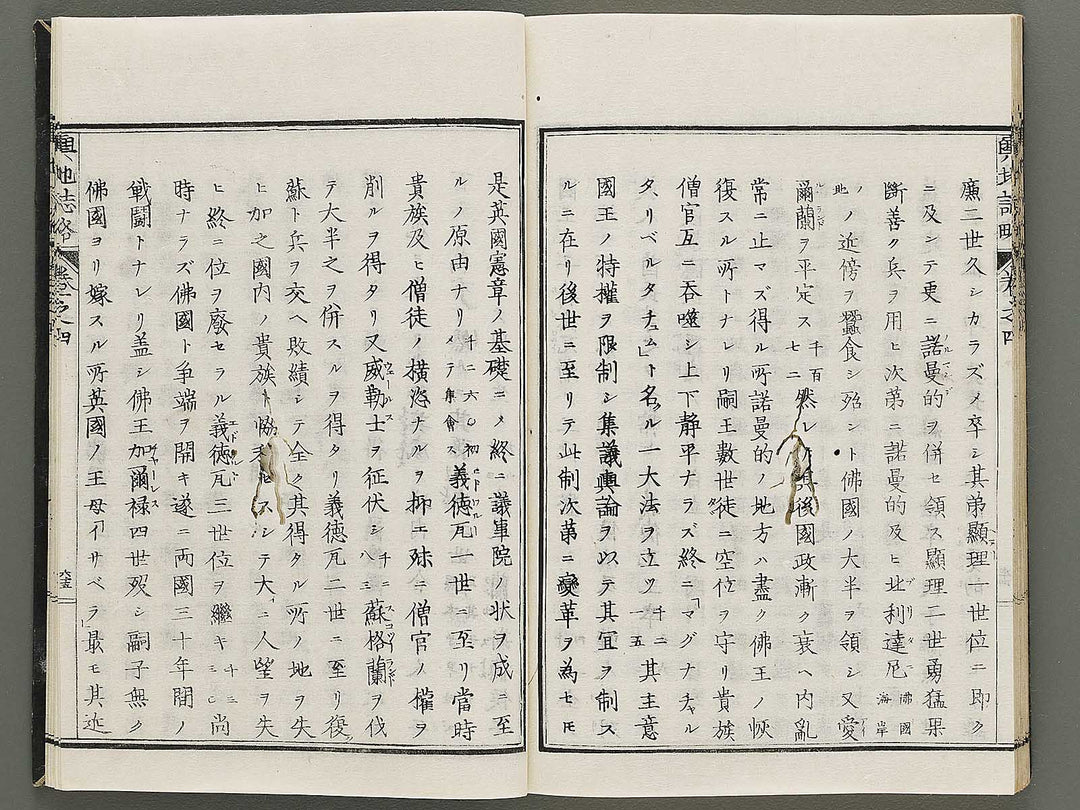 廉二世久シカラズメ卒シ其弟顯理一世位ニ即ク
ニ及シテ更ニ諾曼的ヲ併セ領ス顯理二世勇猛果
斷善ク兵ヲ用ヒ次第ニ諾曼的及ヒ北利達尼佛國海岸
地ノ近傍ヲ蠶食シ殆ント佛國ノ大半ヲ領シ又愛
爾蘭ヲ平定ス千百七二然レ後國政漸ク衰ヘ内亂
常ニ止マズ得ル所諾曼的ノ地方ハ盡ク佛王ノ恢
復スル所トナリ嗣王數世徒ニ空位ヲ守リ貴族
僧官互ニ吞噬シ上下静平ナラズ終ニ「マグナチャル
タ、リベルタチュム」ト名ル一大法ヲ立ツ千二一五其主意
國王ノ特權ヲ限制シ集議輿論ヲ以テ其冝ヲ制ス
ルニ在リ後世ニ至リテ此制次第ニ變革ヲ為セモ
是英國憲章ノ基礎ニメ終ニ議事院ノ状ヲ成ニ至
ルノ原由ナリ千二六〇初メテ會ス義徳瓦一世ニ至リ當時
貴族及ヒ僧徒ノ横恣ナルヲ抑エ殊ニ僧官ノ権ヲ
削ルヲ得タリ又威勒士ヲ征伏シ千二八三蘇格蘭ヲ伐
テ大半之ヲ併スルヲ得タリ義徳瓦二世ニ至リ復
蘇ト兵ヲ交ヘ敗績シテ全ク其得タル所ノ地ヲ失
ヒ加之國内ノ貴族ト協スシテ大ニ人望ヲ失
ヒ終ニ位ヲ廢セラル義徳瓦三世位ヲ繼キ尚
時ナラズ佛國ト争端ヲ開キ遂ニ両國三十年間ノ
戰鬪トナレリ盖シ佛王加爾禄四世歿シ嗣子無ク
佛國ヨリ嫁スル所英國ノ王母「イサベラ」最モ其近
輿地誌略 卷之四
輿地誌略 卷之四
六五